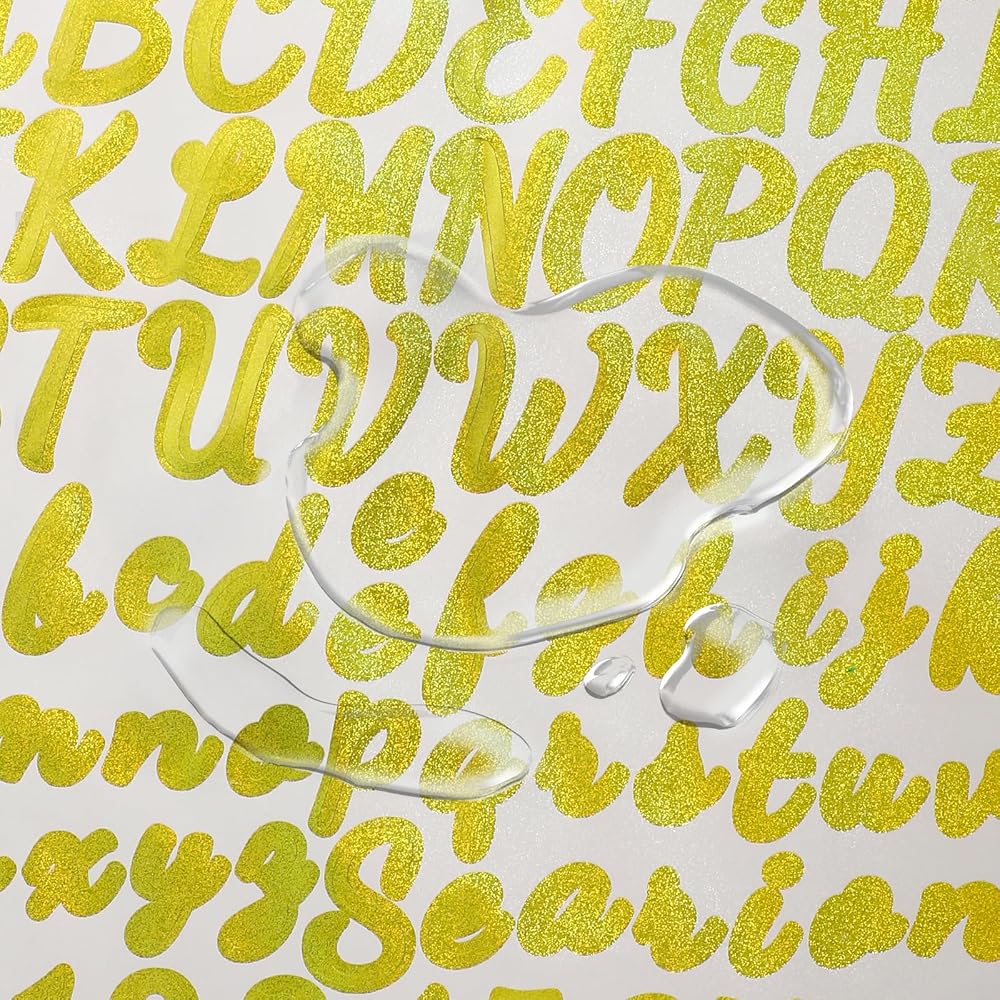 ABCDEFGHI
KLMNOPQR
TUVWXYZ
bcdefghij
mnopqrstuv
xyz